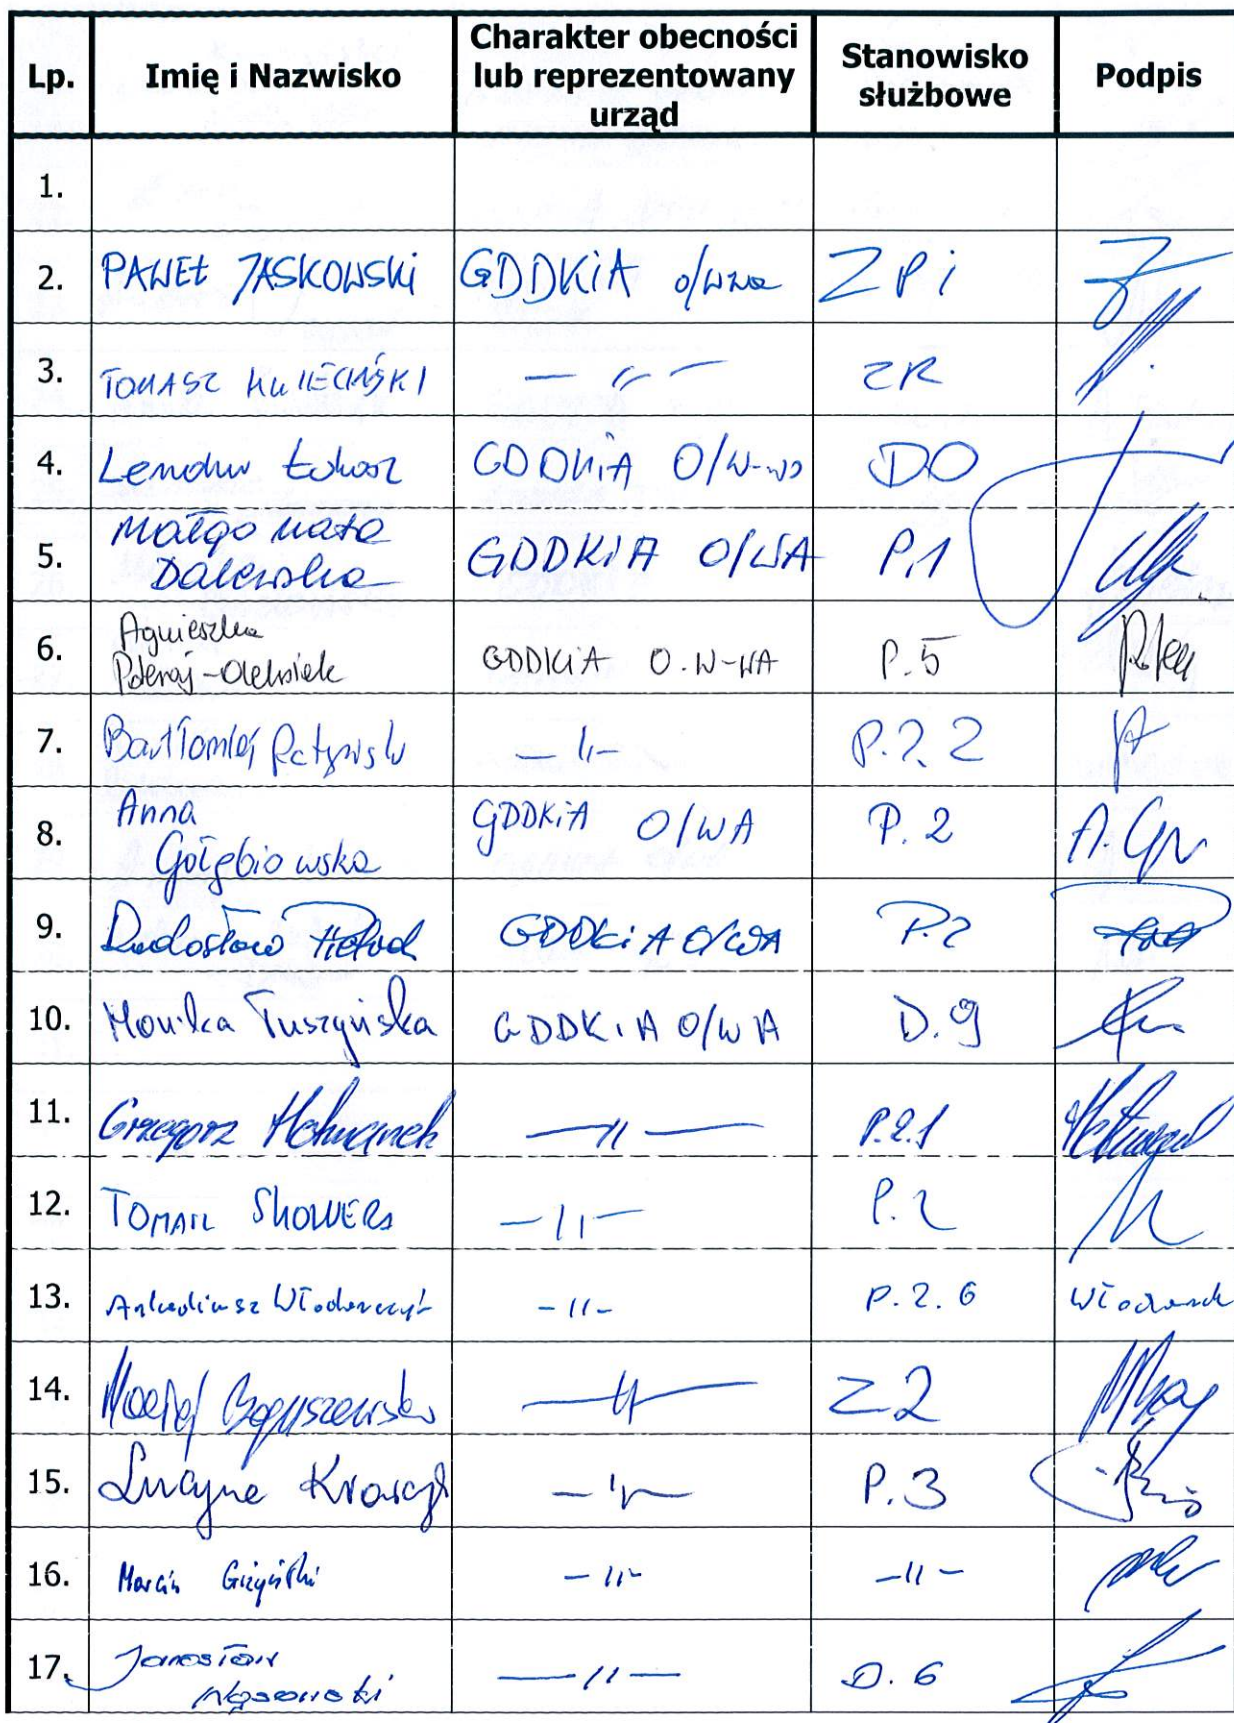 Lp. Imię i Nazwisko Charakter obecności lub reprezentowany urząd Stanowisko służbowe Podpis
1.
2. PAWEŁ JASKOWSKI GDDKiA o/wwa ZPi
3. TOMASZ KWIECIŃSKI — 〃 — ZR
4. Łukasz GDDKiA O/W-wa DO
5. Małgorzata Dalewska GDDKiA O/WA P.1
6. Agnieszka GDDKiA O.W-WA P.5
7. Bartłomiej — 〃 — P.2.2
8. Anna Gołębiowska GDDKiA O/WA P.2 A.
9. Radosław GDDKiA O/WA P.2
10. Monika Tuszyńska GDDKiA O/WA D.9
11. Grzegorz — 〃 — P.2.1
12. TOMASZ — 〃 — P.2
13. Arkadiusz Włodarczyk - 〃 - P.2.6
14. Maciej Boguszewski — 〃 — Z2
15. Lucyna — 〃 — P.3
16. Marcin Giżyński - 〃 - - 〃 -
17. Jarosław — 〃 — D.6